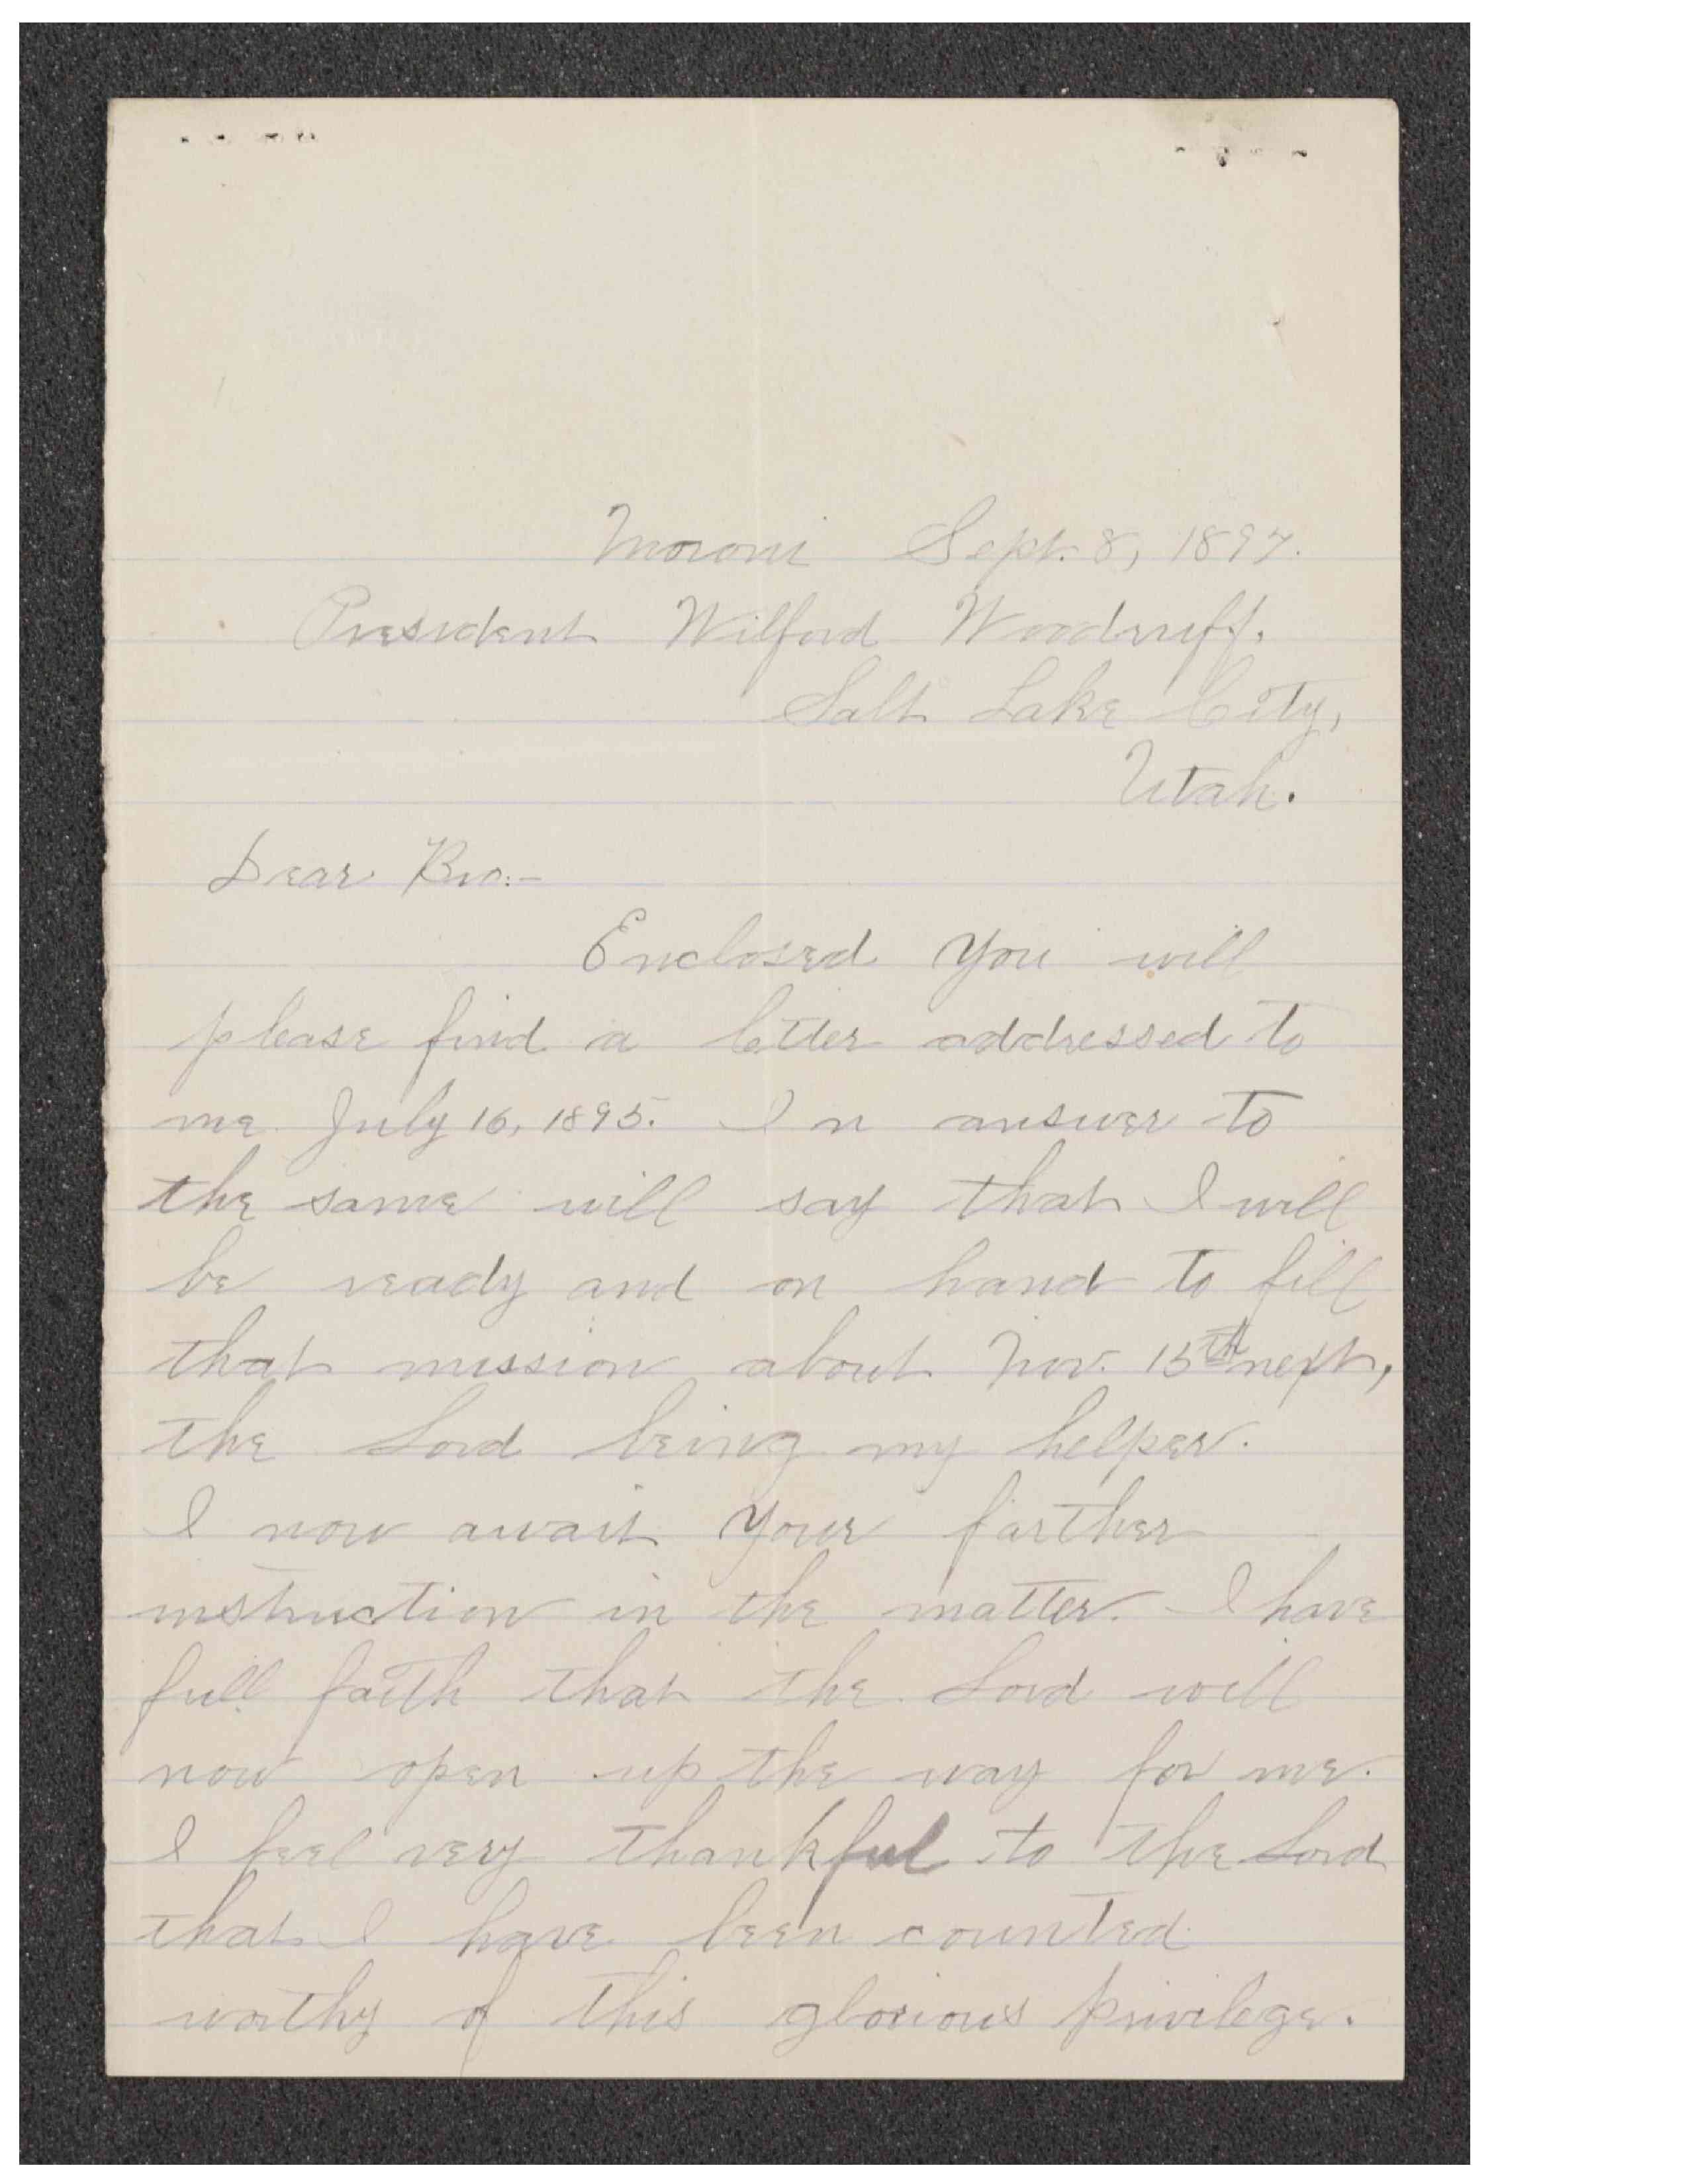 Moroni Sept. 8, 1897.
President Wilford Woodruff.
Salt Lake City,
Utah.
Dear Bro:-
Enclosed you will
please find a letter addressed to
me July 16, 1895. In answer to
the same will say that I will
be ready and on hand to fill
that mission about Nov. 15th next,
the Lord being my helper.
I now await your farther
instruction in the matter. I have
full faith that the Lord will
now open up the way for me.
I feel very thankful to the Lord
that I have been counted
worthy of this glorious privilege.